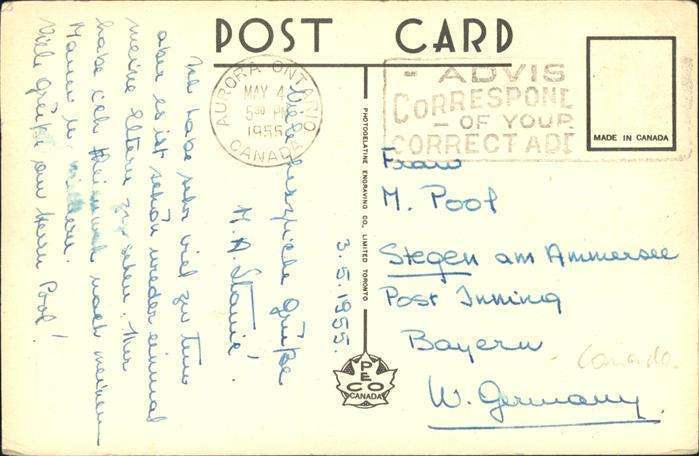 POST CARD
AURORA ONTARIO
MAY 4
5 00 PM
1955
CANADA
- ADVIS
CORRESPOND
- OF YOUR
CORRECT ADD
MADE IN CANADA
PHOTOGELATINE ENGRAVING CO. LIMITED TORONTO
PECO
CANADA
Ich habe sehr viel zu tun
aber es ist schön wieder einmal
meine Eltern zu sehen. Nur
habe ich Heimweh nach meinem
Mann u.
Viele Grüße an Herrn Pool!
Viele herzliche Grüße
M. A.
3.5.1955.
Frau
M. Pool
Stegen am Ammersee
Post Inning
Bayern
W. Germany.
Canada.